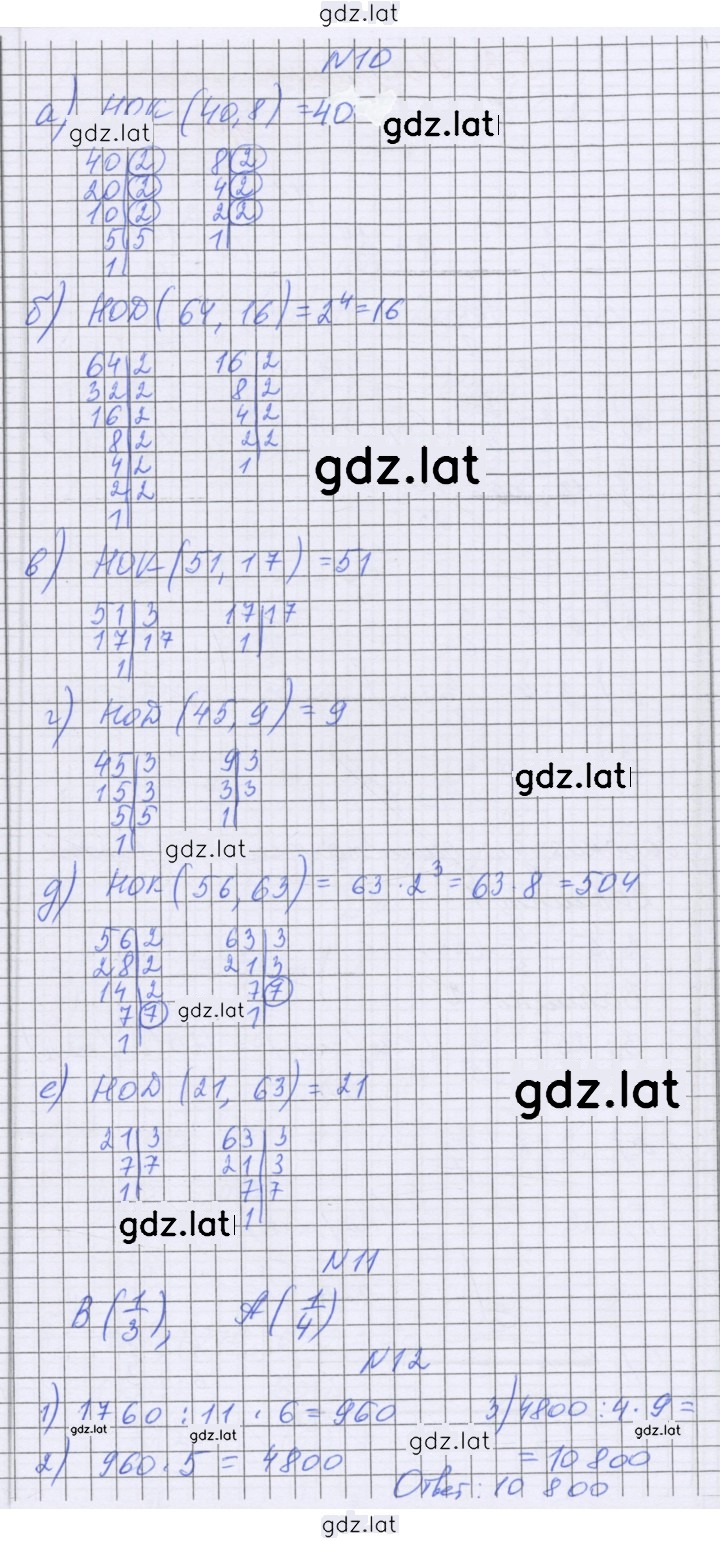 gdz.lat
№10
а) НОК (40,8) =40 gdz.lat
gdz.lat
40|2 8|2
20|2 4|2
10|2 2|2
5|5 1|
1|
б) НОД (64, 16) = 2⁴=16
64|2 16|2
32|2 8|2
16|2 4|2
8|2 2|2
4|2 1
2|2
1|
gdz.lat
в) НОК (51, 17) =51
51|3 17|17
17|17 1|
1|
г) НОД (45, 9) = 9
45|3 9|3
15|3 3|3
5|5 1|
1|
gdz.lat
gdz.lat
д) НОК (56, 63) = 63·2³= 63·8 =504
56|2 63|3
28|2 21|3
14|2 7|7
7|7 1|
1|
gdz.lat
е) НОД (21, 63) = 21
gdz.lat
21|3 63|3
7|7 21|3
1| 7|7
1|
gdz.lat
№11
В (1/3), А (1/4)
№12
1) 1760 : 11 · 6 = 960 3) 4800 : 4 · 9 =
gdz.lat gdz.lat gdz.lat gdz.lat
2) 960 · 5 = 4800 = 10800
Ответ: 10 800
gdz.lat